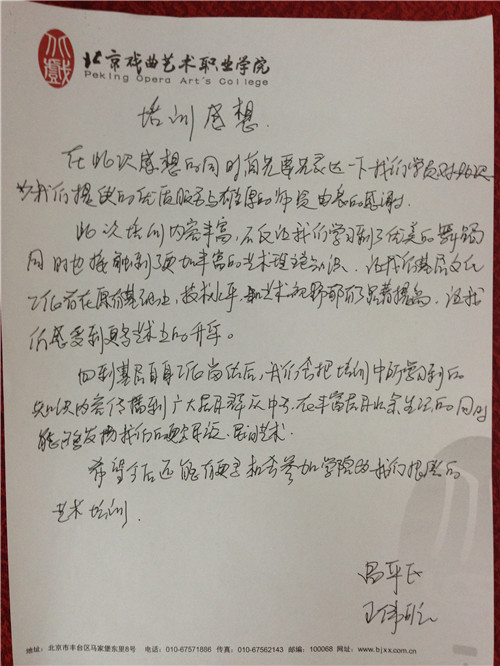 北戏
北京戏曲艺术职业学院
Peking Opera Art's College
培训感想.
在此次感想的同时首先要先表达一下我们学员对此次
为我们提供的优质服务与雄厚的师资由衷的感谢.
此次培训内容丰富,不仅让我们学习到了优美的舞蹈
同时也接触到了更加丰富的艺术理论知识.让我们基层文化
工作者在原有基础上,技术水平,和艺术视野都有了显著提高,让我
们感受到真学艺术上的升华。
回到基层自身工作岗位后,我们会把培训中所学习到的
知识内容传播到广大居民群众中去,在丰富居民业余生活的同时
能够发扬我们的艺术.
希望今后还能有更多机会参加学院给我们提供的
艺术培训.
昌平区
王伟
地址:北京市丰台区马家堡东里8号 电话:010-67571886 传真:010-67562143 邮编:100068 网址:www.bjxx.com.cn